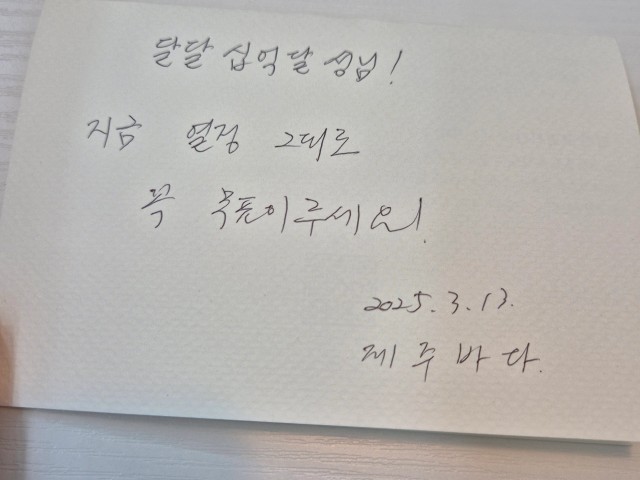 달달 십억달성님!
지금 열정 그대로
꼭 목표이루세요!
2025. 3. 13.
제주바다.